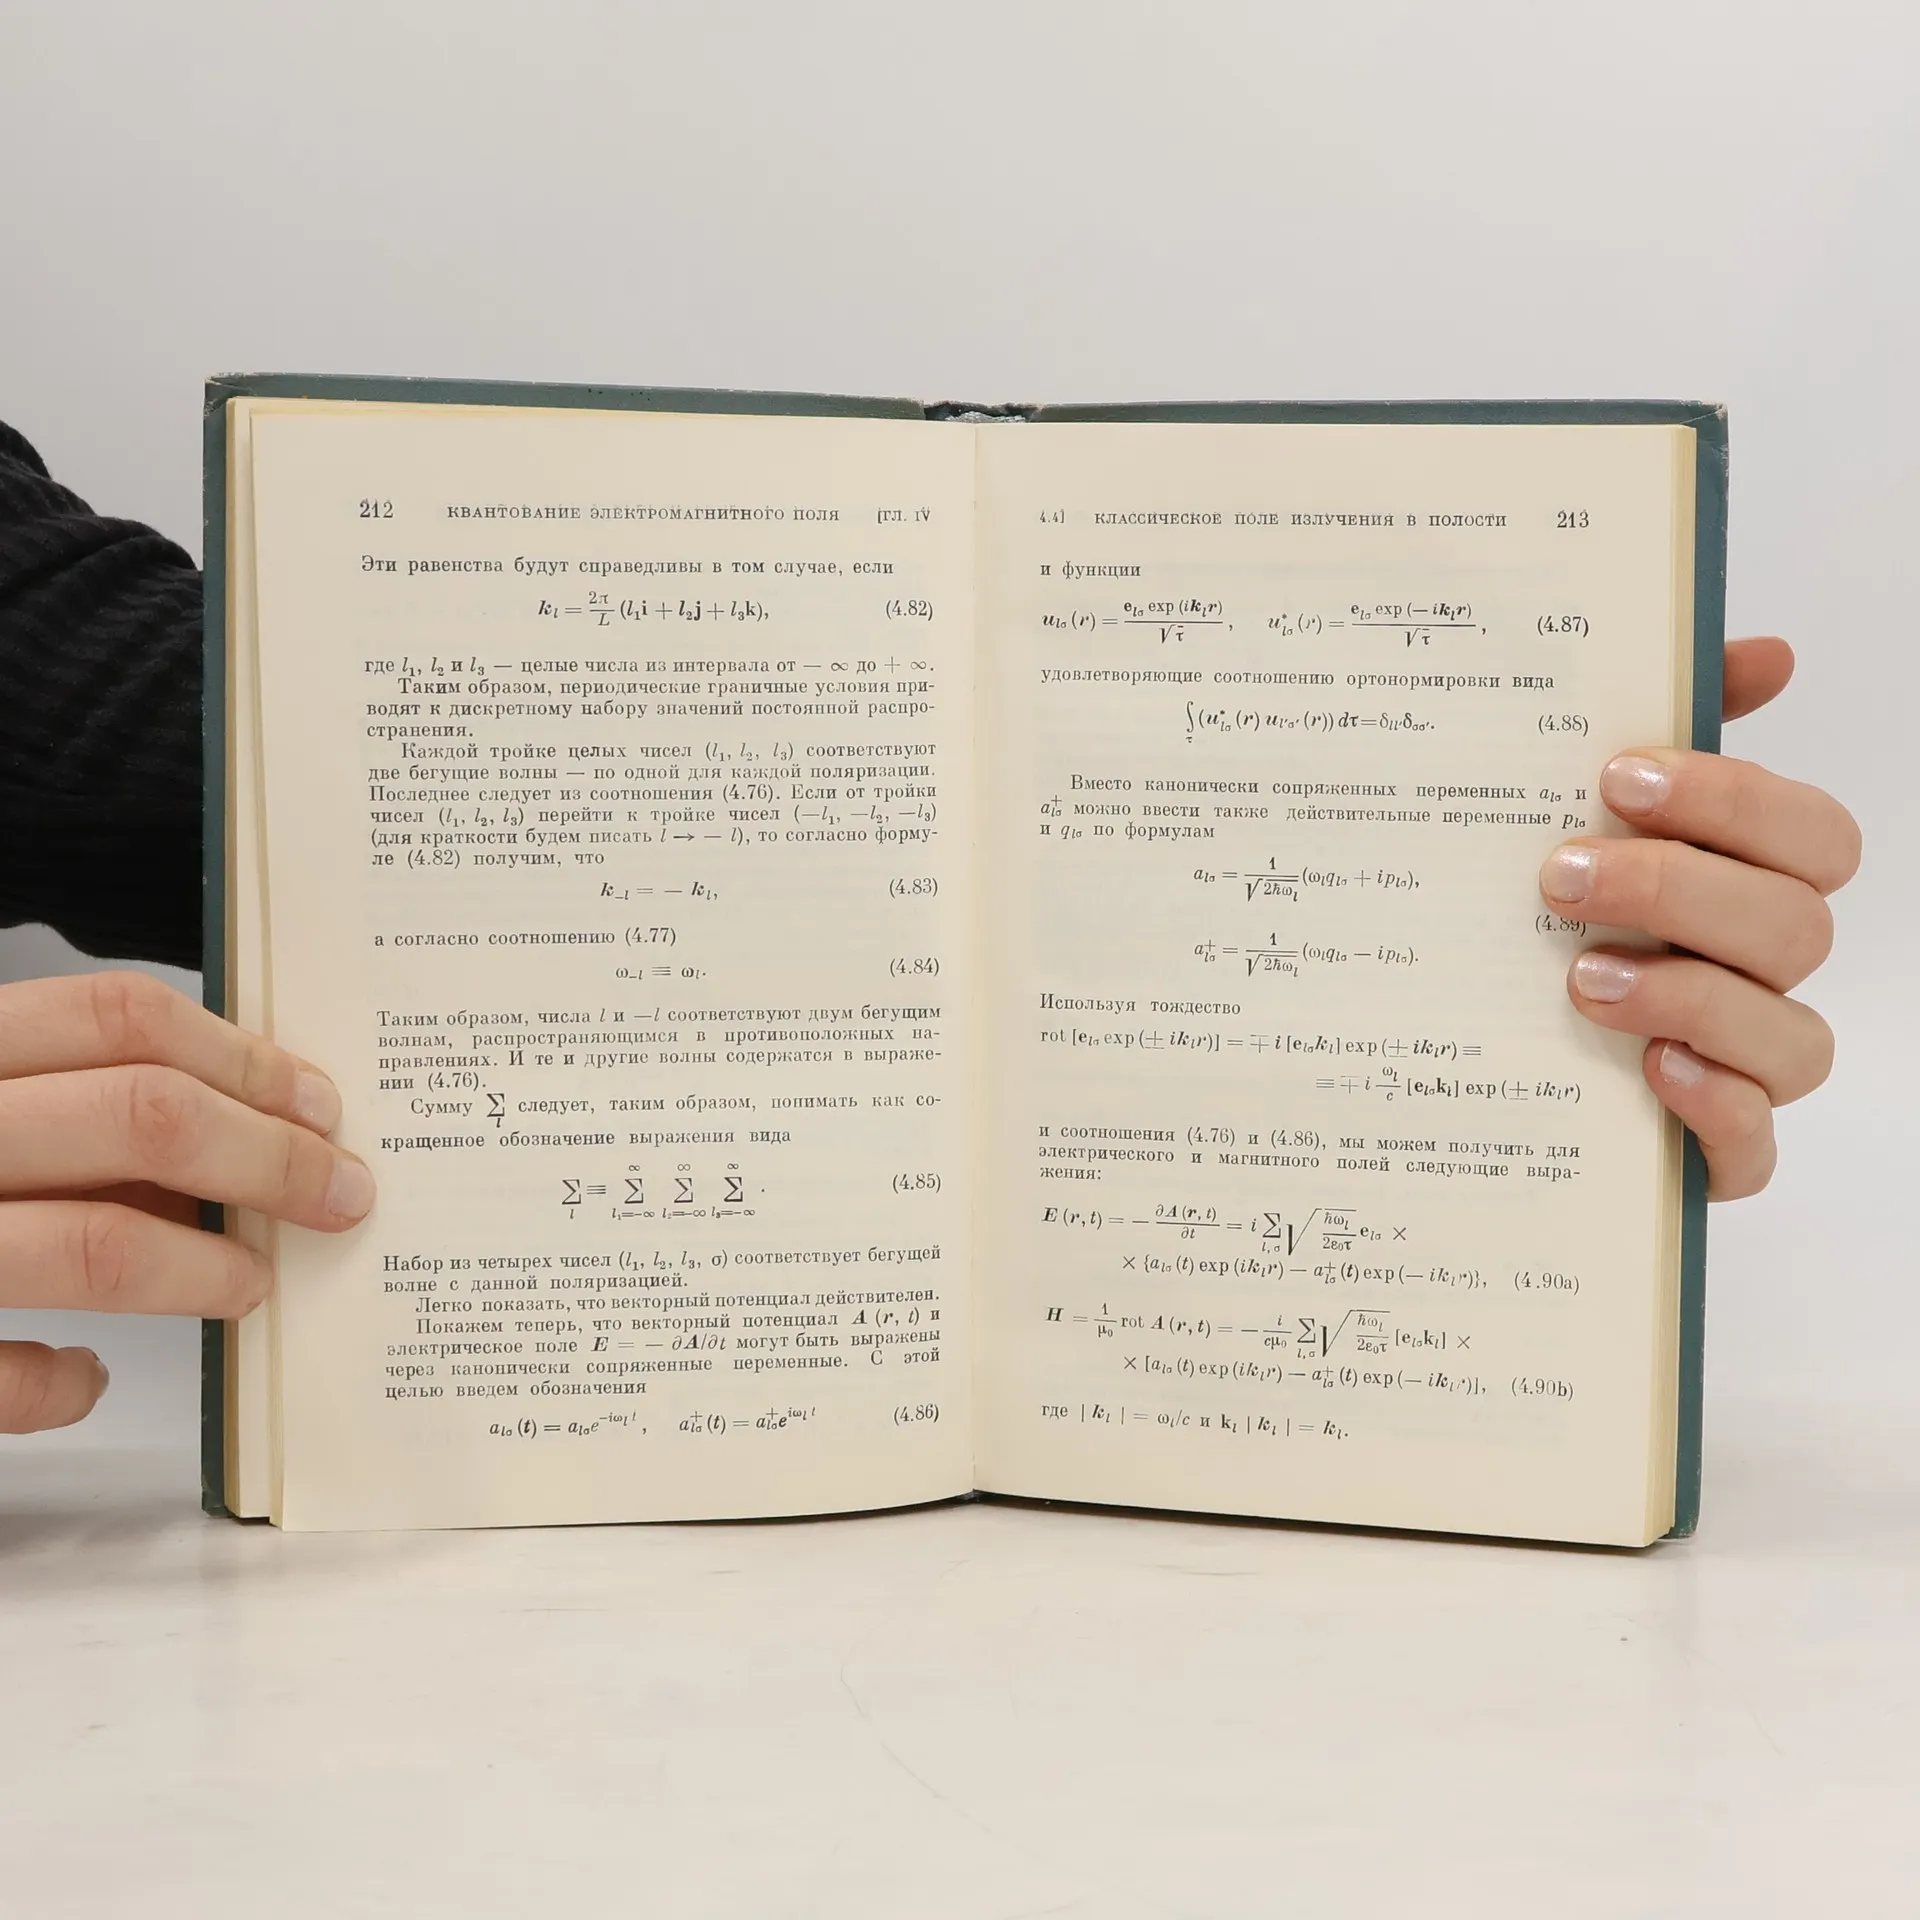 212 КВАНТОВАНИЕ ЭЛЕКТРОМАГНИТНОГО ПОЛЯ [ГЛ. IV
Эти равенства будут справедливы в том случае, если
k_l = 2π/L (l₁i + l₂j + l₃k), (4.82)
где l₁, l₂ и l₃ — целые числа из интервала от — ∞ до + ∞.
Таким образом, периодические граничные условия при-
водят к дискретному набору значений постоянной распро-
странения.
Каждой тройке целых чисел (l₁, l₂, l₃) соответствуют
две бегущие волны — по одной для каждой поляризации.
Последнее следует из соотношения (4.76). Если от тройки
чисел (l₁, l₂, l₃) перейти к тройке чисел (—l₁, —l₂, —l₃)
(для краткости будем писать l → — l), то согласно форму-
ле (4.82) получим, что
k_{-l} = — k_l, (4.83)
а согласно соотношению (4.77)
ω_{-l} ≡ ω_l. (4.84)
Таким образом, числа l и —l соответствуют двум бегущим
волнам, распространяющимся в противоположных на-
правлениях. И те и другие волны содержатся в выраже-
нии (4.76).
Сумму ∑_l следует, таким образом, понимать как со-
кращенное обозначение выражения вида
∑_l ≡ ∑_{l₁=—∞}^∞ ∑_{l₂=—∞}^∞ ∑_{l₃=—∞}^∞ . (4.85)
Набор из четырех чисел (l₁, l₂, l₃, σ) соответствует бегущей
волне с данной поляризацией.
Легко показать, что векторный потенциал действителен.
Покажем теперь, что векторный потенциал A (r, t) и
электрическое поле E = — ∂A/∂t могут быть выражены
через канонически сопряженные переменные. С этой
целью введем обозначения
a_{lσ} (t) = a_{lσ}e^{-iω_l t}, a⁺_{lσ} (t) = a⁺_{lσ}e^{iω_l t} (4.86)
4.4] КЛАССИЧЕСКОЕ ПОЛЕ ИЗЛУЧЕНИЯ В ПОЛОСТИ 213
и функции
u_{lσ} (r) = e_{lσ} exp (ik_l r)/√τ, u*_{lσ} (r) = e_{lσ} exp (— ik_l r)/√τ, (4.87)
удовлетворяющие соотношению ортонормировки вида
∫_τ (u*_{lσ} (r) u_{l'σ'} (r)) dτ = δ_{ll'}δ_{σσ'}. (4.88)
Вместо канонически сопряженных переменных a_{lσ} и
a⁺_{lσ} можно ввести также действительные переменные p_{lσ}
и q_{lσ} по формулам
a_{lσ} = 1/√(2ħω_l) (ω_l q_{lσ} + ip_{lσ}),
(4.89)
a⁺_{lσ} = 1/√(2ħω_l) (ω_l q_{lσ} — ip_{lσ}).
Используя тождество
rot [e_{lσ} exp (± ik_l r)] = ∓ i [e_{lσ}k_l] exp (± ik_l r) ≡
≡ ∓ i ω_l/c [e_{lσ}k_l] exp (± ik_l r)
и соотношения (4.76) и (4.86), мы можем получить для
электрического и магнитного полей следующие выра-
жения:
E (r, t) = — ∂A (r, t)/∂t = i ∑_{l, σ} √(ħω_l/2ε₀τ) e_{lσ} ×
× {a_{lσ} (t) exp (ik_l r) — a⁺_{lσ} (t) exp (— ik_l r)}, (4.90a)
H = 1/μ₀ rot A (r, t) = — i/cμ₀ ∑_{l, σ} √(ħω_l/2ε₀τ) [e_{lσ}k_l] ×
× [a_{lσ} (t) exp (ik_l r) — a⁺_{lσ} (t) exp (— ik_l r)], (4.90b)
где | k_l | = ω_l/c и k_l | k_l | = k_l.